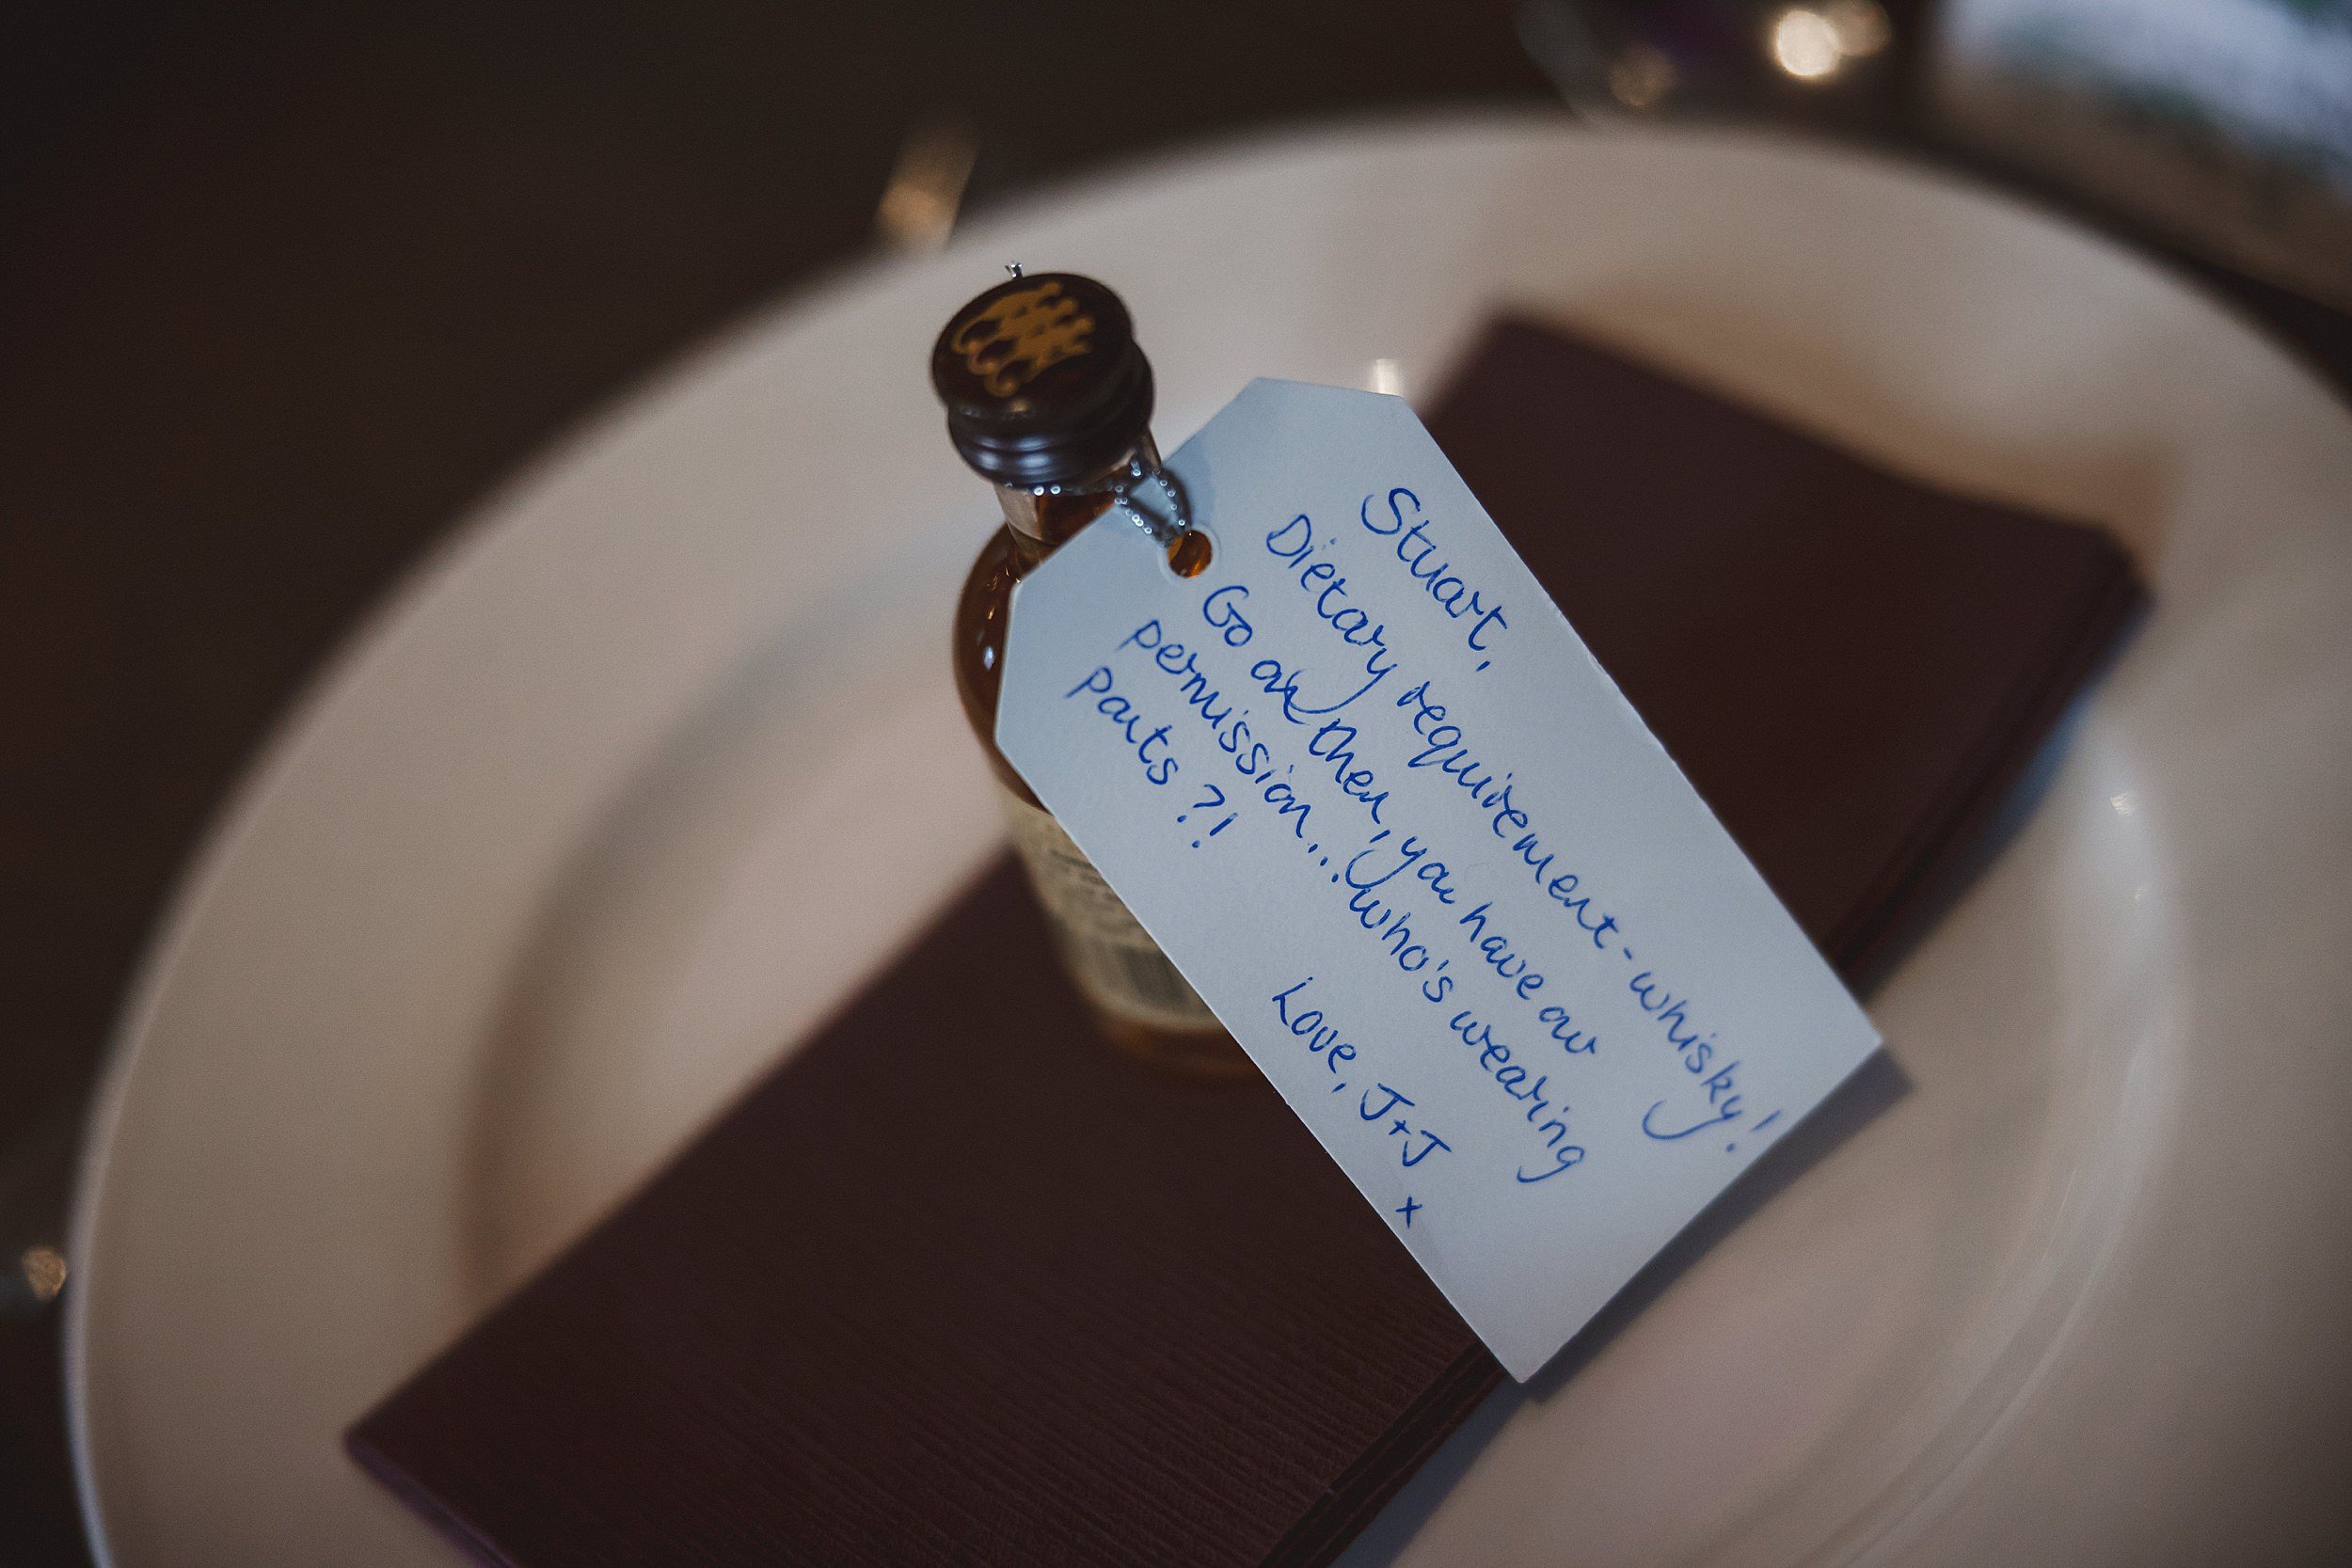 Stuart,
Dietary requirement - whisky!
Go on then, you have our
permission... who's wearing
pants?!
Love, J+J
x